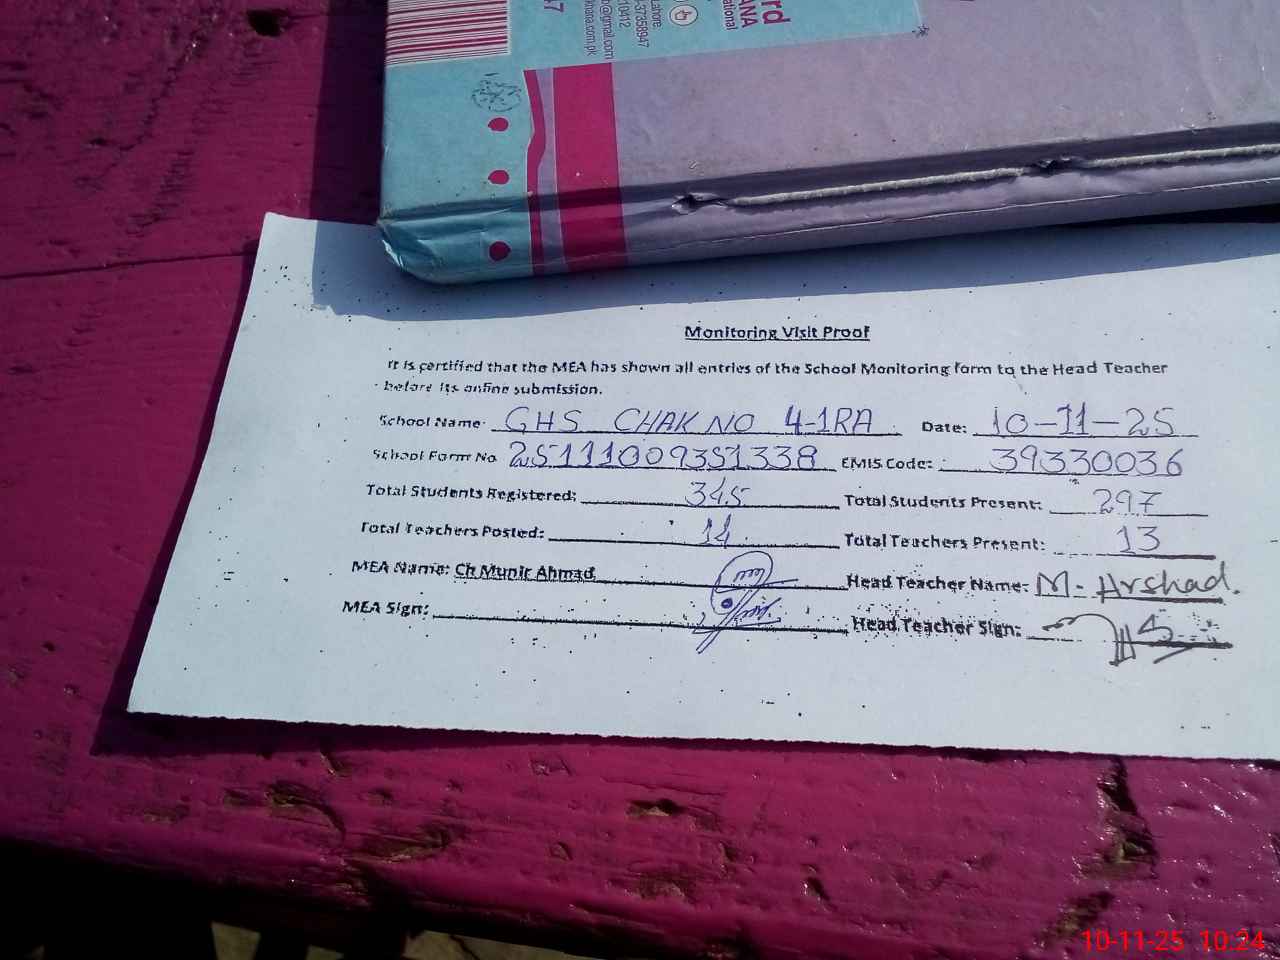 47
Lahore
-37358947
10412
b@gmail.com
khana.com.pk
national
ANA
rd
Monitoring Visit Proof
It is certified that the MEA has shown all entries of the School Monitoring form to the Head Teacher
before its online submission.
School Name: GHS CHAK NO 4-1RA Date: 10-11-25
School Form No. 25111009351338 EMIS Code: 39330036
Total Students Registered: 345 Total Students Present: 297
Total Teachers Posted: 14 Total Teachers Present: 13
MEA Name: Ch Munir Ahmad Head Teacher Name: M. Arshad.
MEA Sign: Head Teacher Sign:
10-11-25 10:24